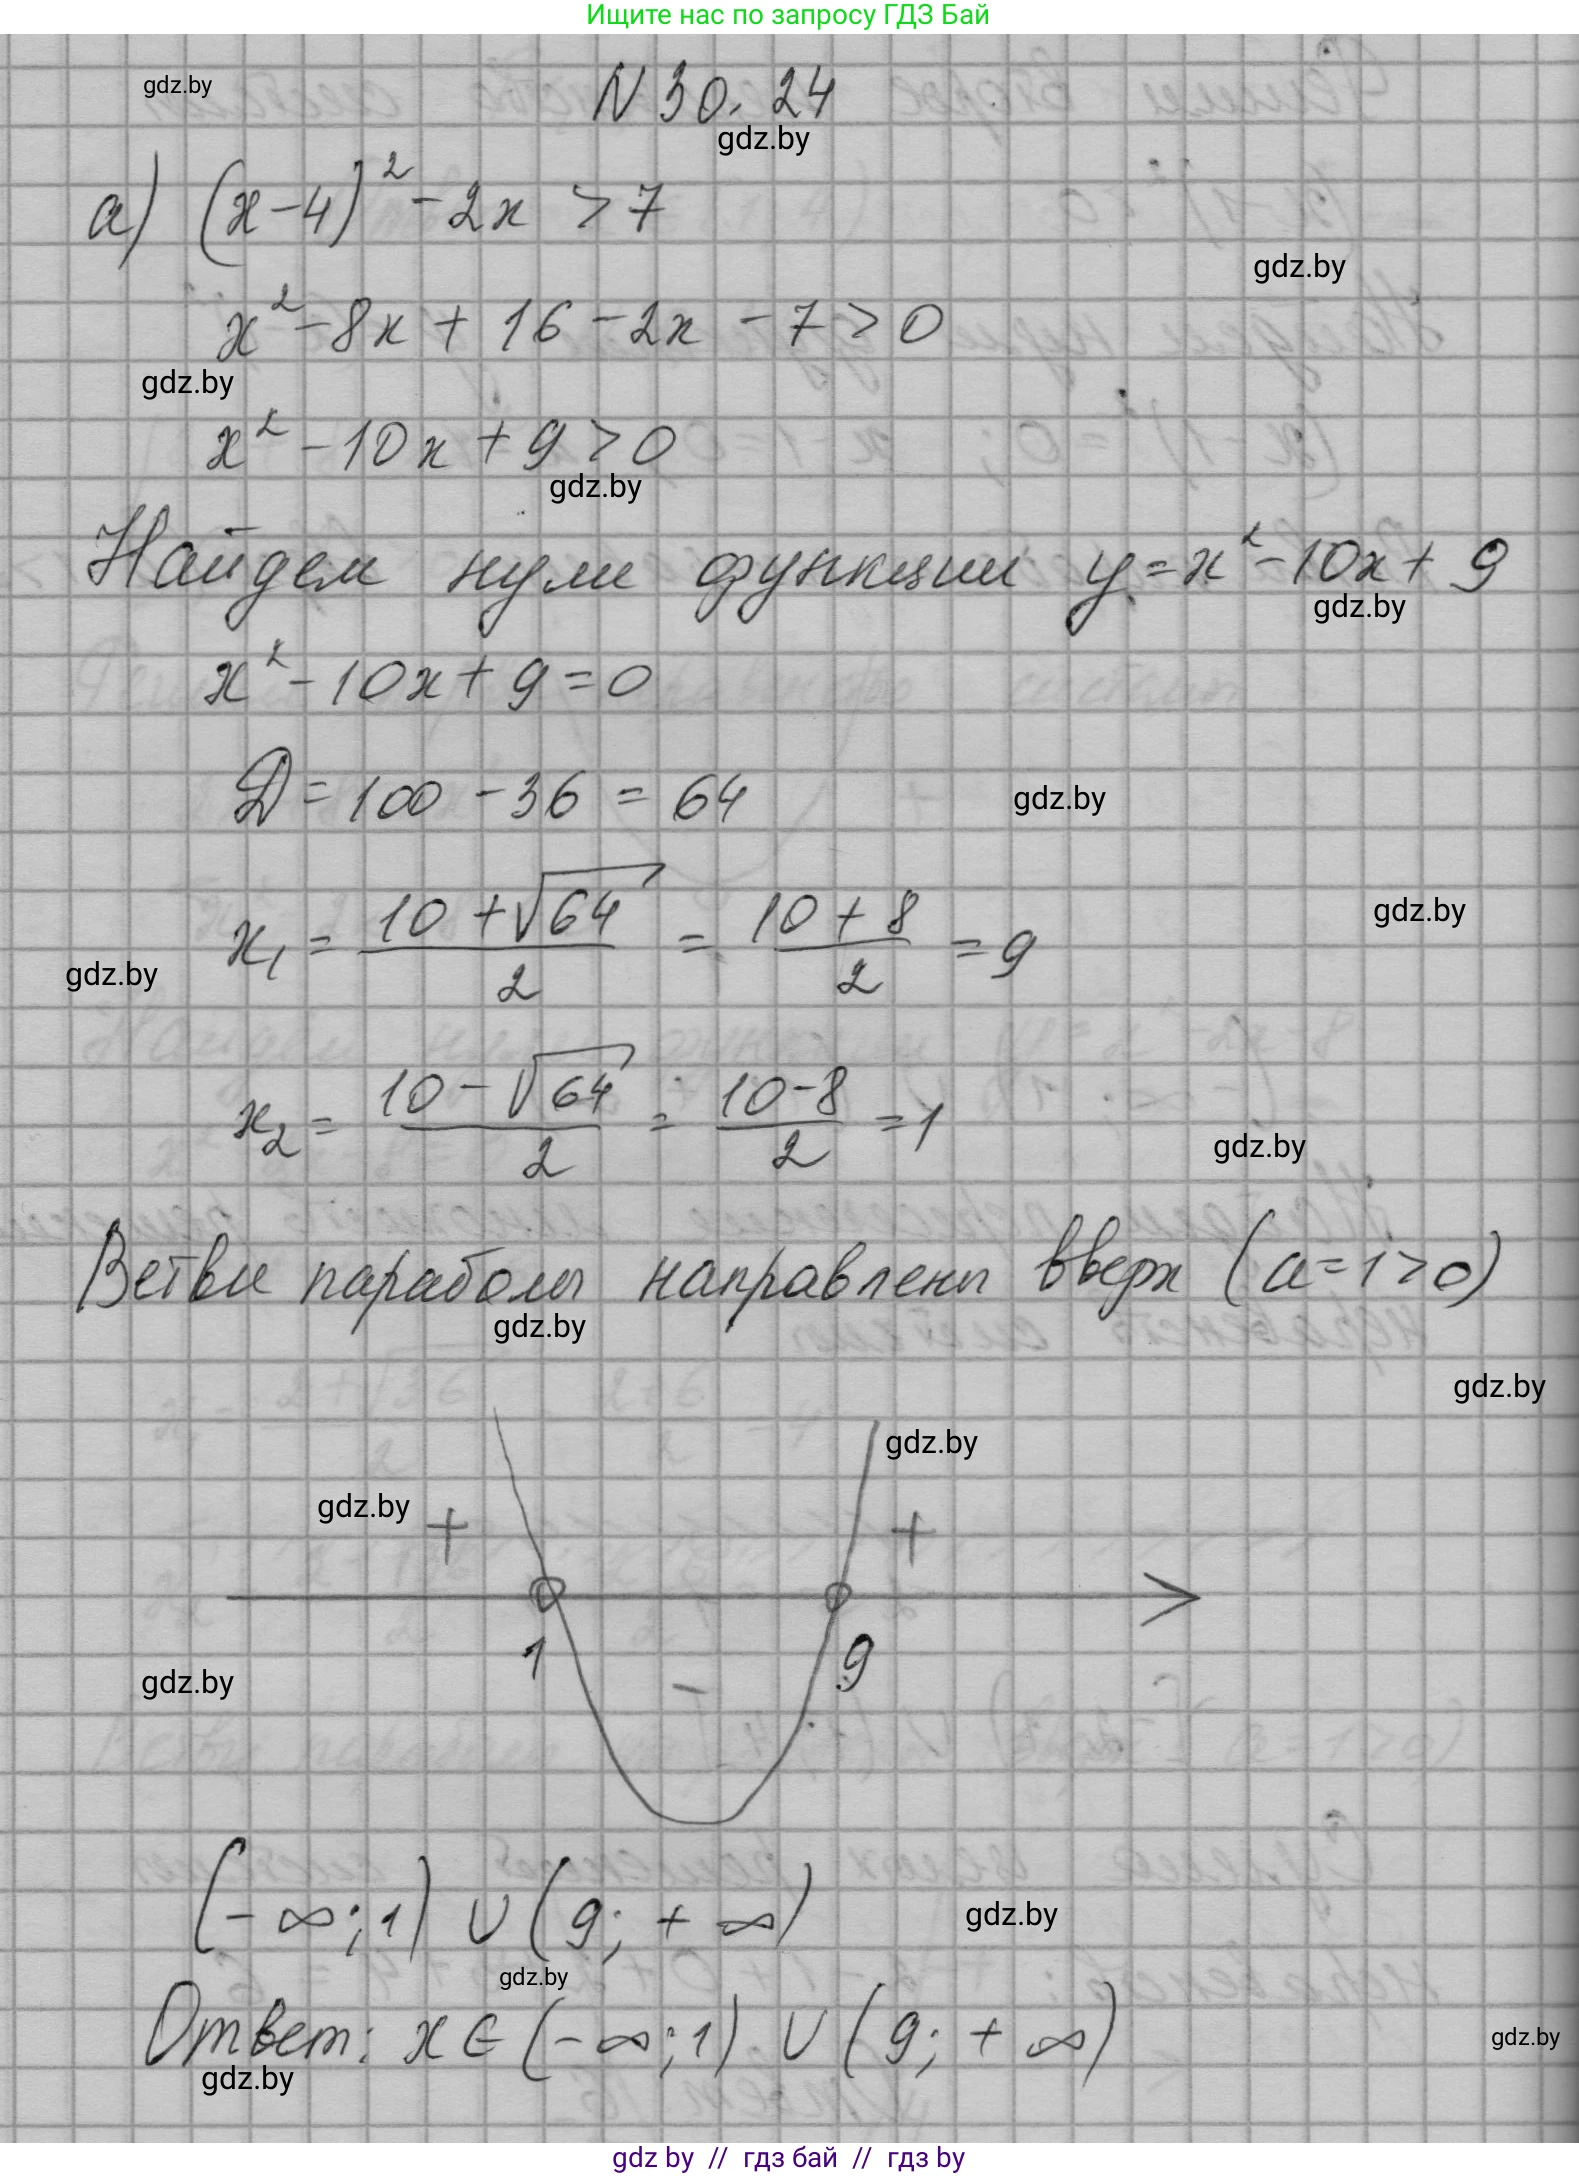 Ищите нас по запросу ГДЗ Бай
N 30. 24
gdz.by
gdz.by
а) (x-4)² - 2x > 7
gdz.by
x² - 8x + 16 - 2x - 7 > 0
gdz.by
x² - 10x + 9 > 0
gdz.by
Найдем нули функции y = x² - 10x + 9
gdz.by
x² - 10x + 9 = 0
D = 100 - 36 = 64
gdz.by
x₁ = (10 + √64)/2 = (10 + 8)/2 = 9
gdz.by
gdz.by
x₂ = (10 - √64)/2 = (10 - 8)/2 = 1
gdz.by
Ветви параболы направлены вверх (a = 1 > 0)
gdz.by
gdz.by
gdz.by
gdz.by
+ +
1 9
-
gdz.by
(-∞; 1) ∪ (9; +∞)
gdz.by
gdz.by
Ответ: x ∈ (-∞; 1) ∪ (9; +∞)
gdz.by
gdz.by
gdz by // гдз бай // гдз by